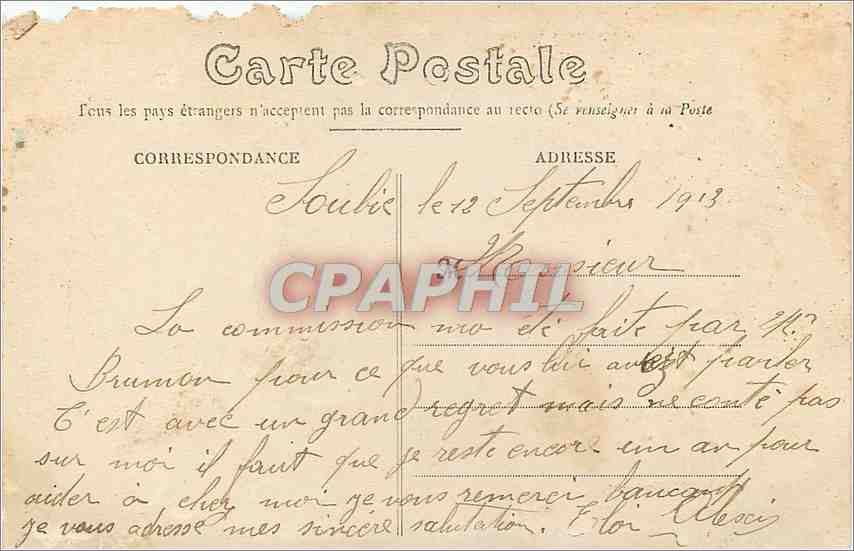 Carte Postale
Tous les pays étrangers n'acceptent pas la correspondance au recto (Se renseigner à la Poste
CORRESPONDANCE ADRESSE
le 12 Septembre 1913
Monsieur
CPAPHIL
La commission ma été faite par Mr
Brumon pour ce que vous lui avest parler
C'est avec un grand regret mais ne conté pas
sur moi il faut que je reste encore un an pour
aider à cher moi je vous remerci baucaup
je vous adresse mes sincère salutation. Eloi Alexis